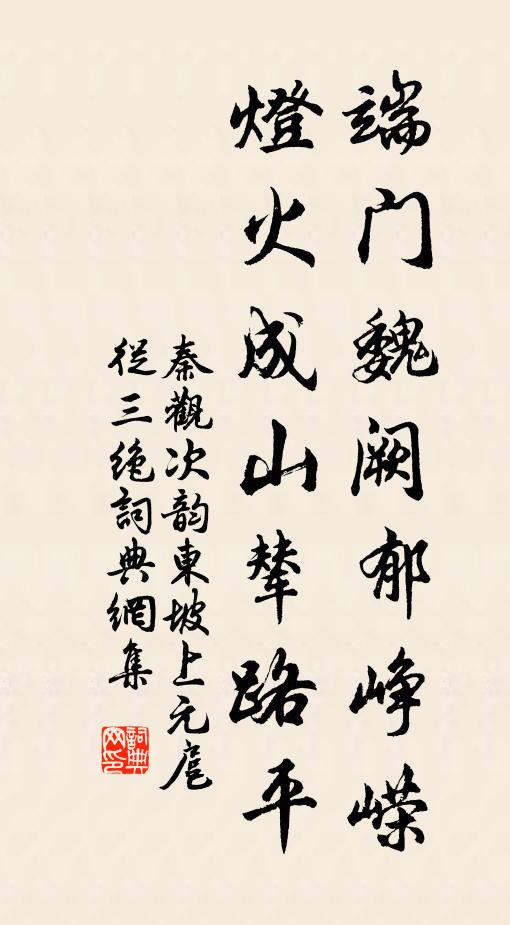 端门魏阙郁峥嵘
燈火成山輦路平
秦觀次韵東坡上元扈
從三绝詞典網集
詞典网印